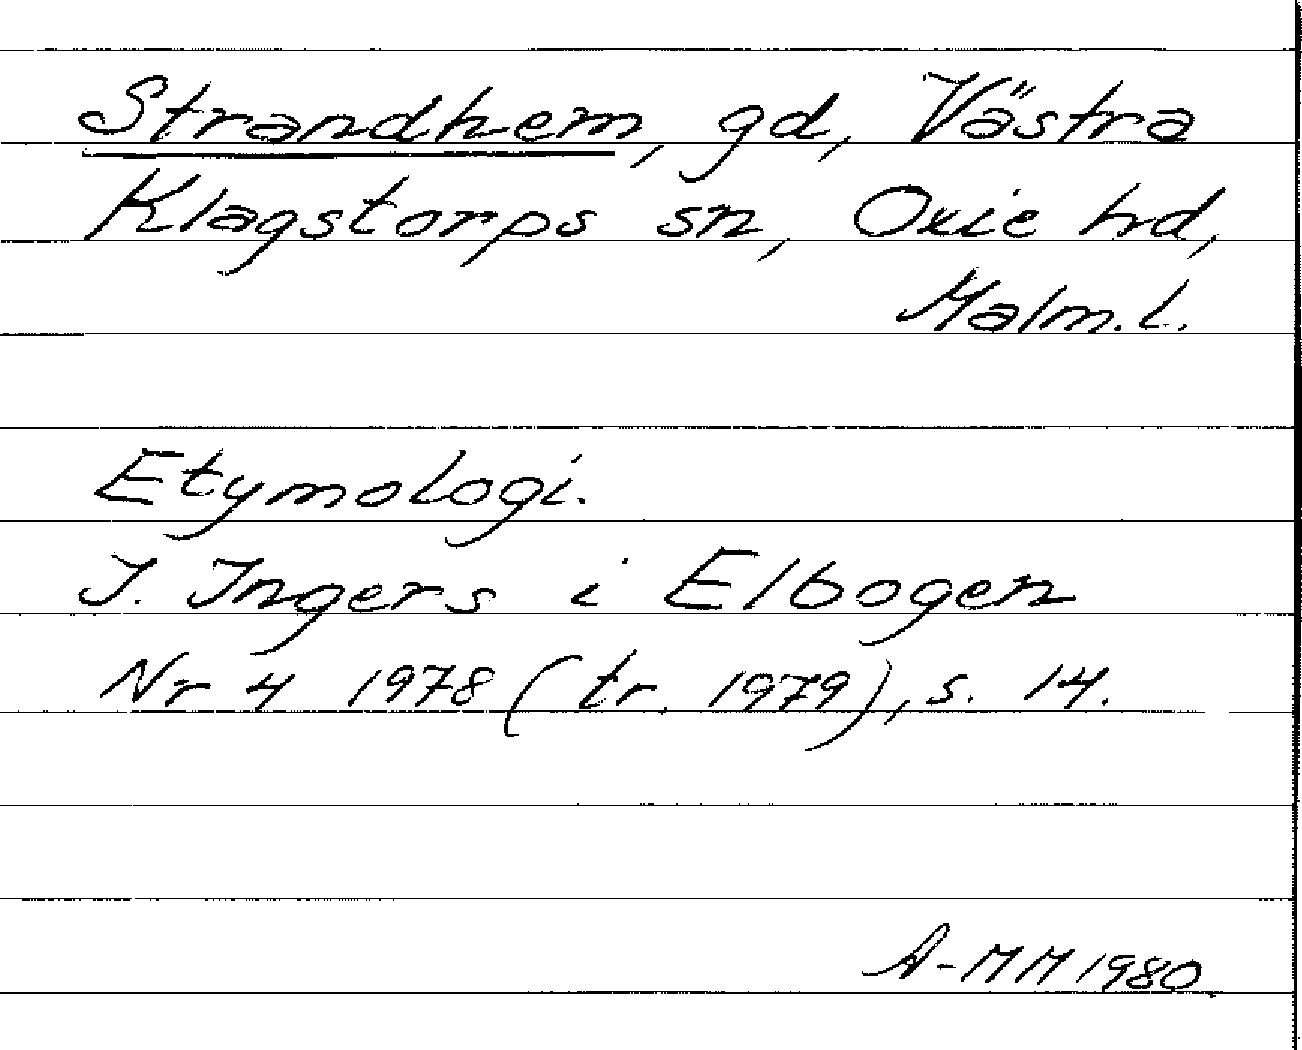 Strandhem, gd, Västra
Klagstorps sn, Oxie hd,
Malm. l.
Etymologi.
I. Ingers i Elbogen
Nr 4 1978 (tr. 1979), s. 14.
A-MM 1980.